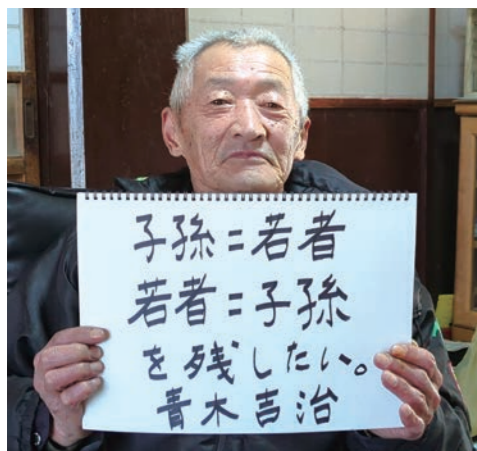 子孫=若者
若者=子孫
を残したい。
青木吉治